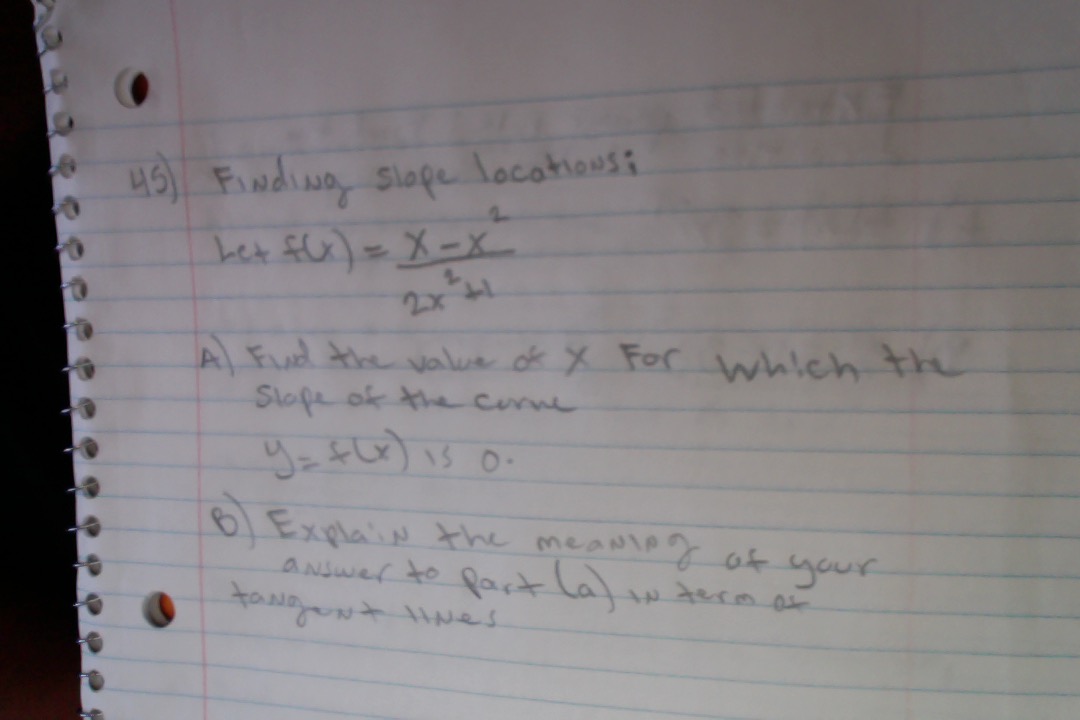 45) Finding slope locations:
Let f(x) = x-x²
2x²+1
A) Find the value of x For which the
slope of the curve
y = f(x) is 0.
B) Explain the meaning of your
answer to part (a) in term of
tangent lines